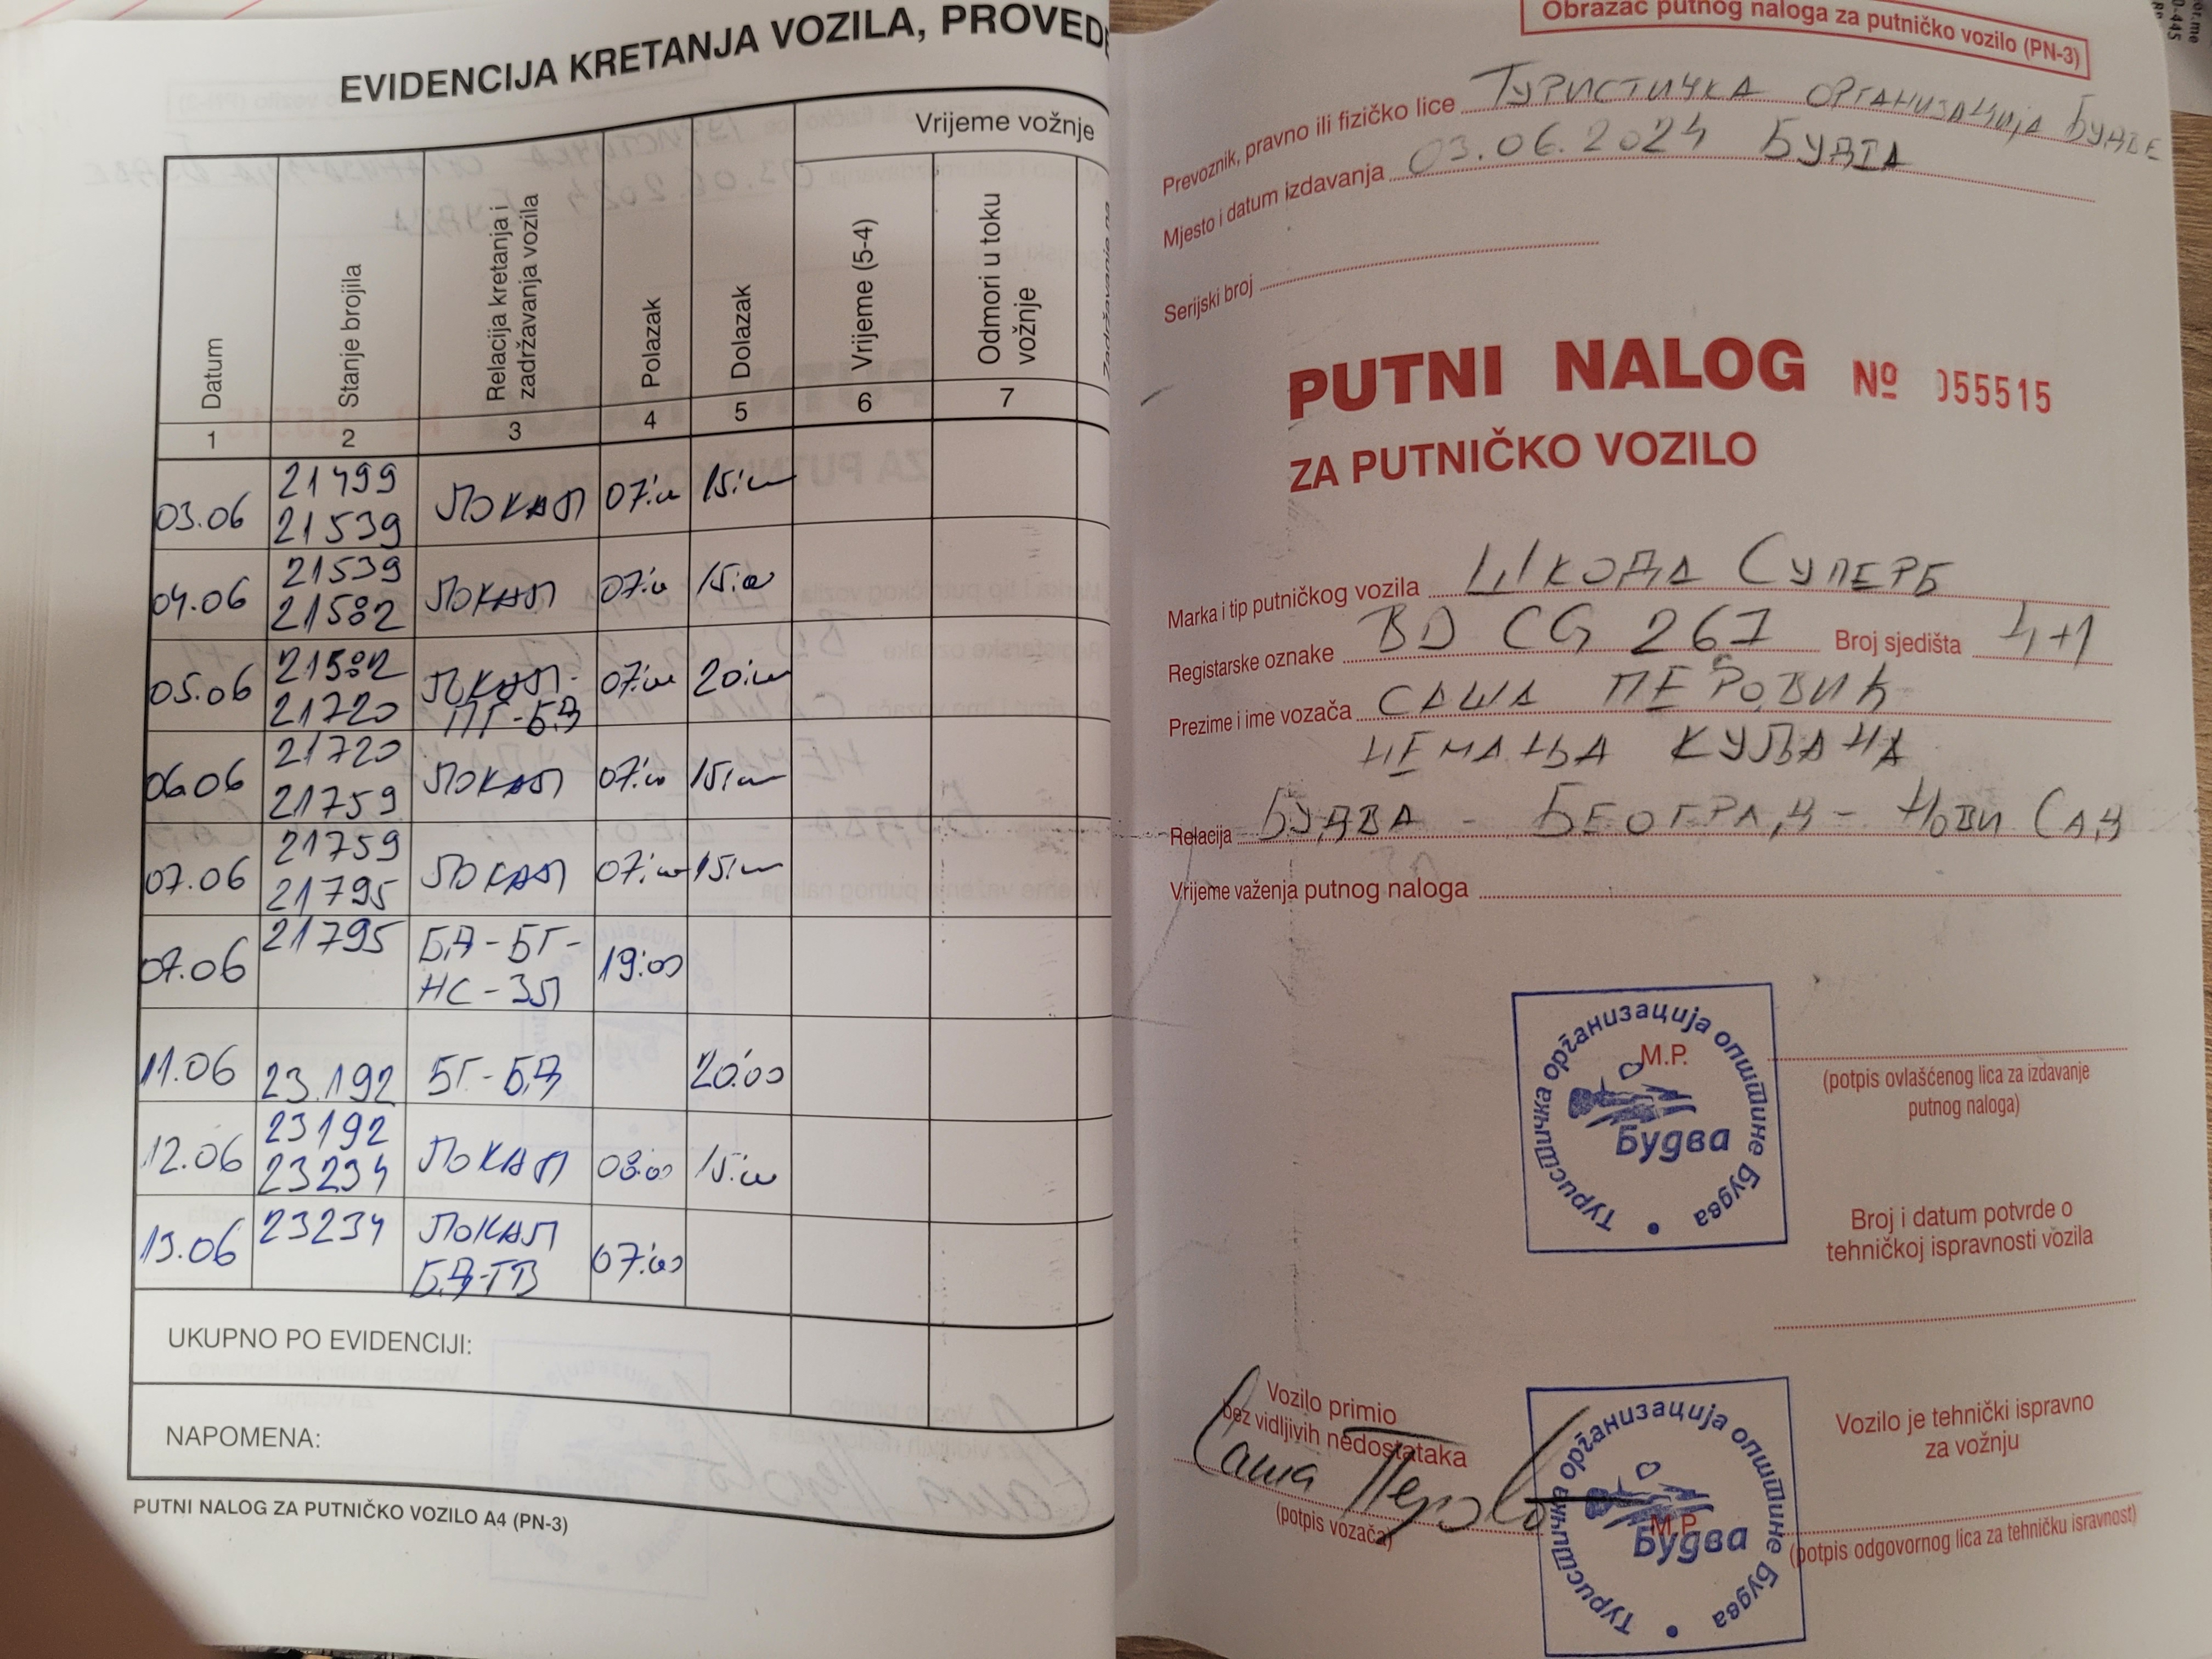 EVIDENCIJA KRETANJA VOZILA, PROVED
Vrijeme vožnje
Datum
Stanje brojila
Relacija kretanja i zadržavanja vozila
Polazak
Dolazak
Vrijeme (5-4)
Odmori u toku vožnje
1 2 3 4 5 6 7
03.06 21499 21539 ЛОКАЛ 07:00 15:00
04.06 21539 21582 ЛОКАЛ 07:00 15:00
05.06 21582 21720 ЛОКАЛ- ПГ-БД 07:00 20:00
06.06 21720 21759 ЛОКАЛ 07:00 15:00
07.06 21759 21795 ЛОКАЛ 07:00 15:00
07.06 21795 БД-БГ- НС-ЗЛ 19:00
11.06 23.192 БГ-БД 20:00
12.06 23192 23234 ЛОКАЛ 08:00 15:00
13.06 23234 ЛОКАЛ БД-ТВ 07:00
UKUPNO PO EVIDENCIJI:
NAPOMENA:
PUTNI NALOG ZA PUTNIČKO VOZILO A4 (PN-3)
Obrazac putnog naloga za putničko vozilo (PN-3)
Prevoznik, pravno ili fizičko lice ТУРИСТИЧКА ОРГАНИЗАЦИЈА БУДВЕ
Mjesto i datum izdavanja 03.06.2024 БУДВА
Serijski broj
PUTNI NALOG № 055515
ZA PUTNIČKO VOZILO
Marka i tip putničkog vozila ШКОДА СУПЕРБ
Registarske oznake BD CG 267 Broj sjedišta 4+1
Prezime i ime vozača САША ПЕРОВИЋ
НЕМАЊА КУЉАЧА
Relacija БУДВА - БЕОГРАД - НОВИ САД
ЗЛ
Vrijeme važenja putnog naloga
Туристичка организација општине Будва
М.Р.
Будва
(potpis ovlašćenog lica za izdavanje
putnog naloga)
Broj i datum potvrde o
tehničkoj ispravnosti vozila
Vozilo primio
bez vidljivih nedostataka
Саша Перовић
(potpis vozača)
Туристичка организација општине Будва
М.Р.
Будва
Vozilo je tehnički ispravno
za vožnju
(potpis odgovornog lica za tehničku isravnost)